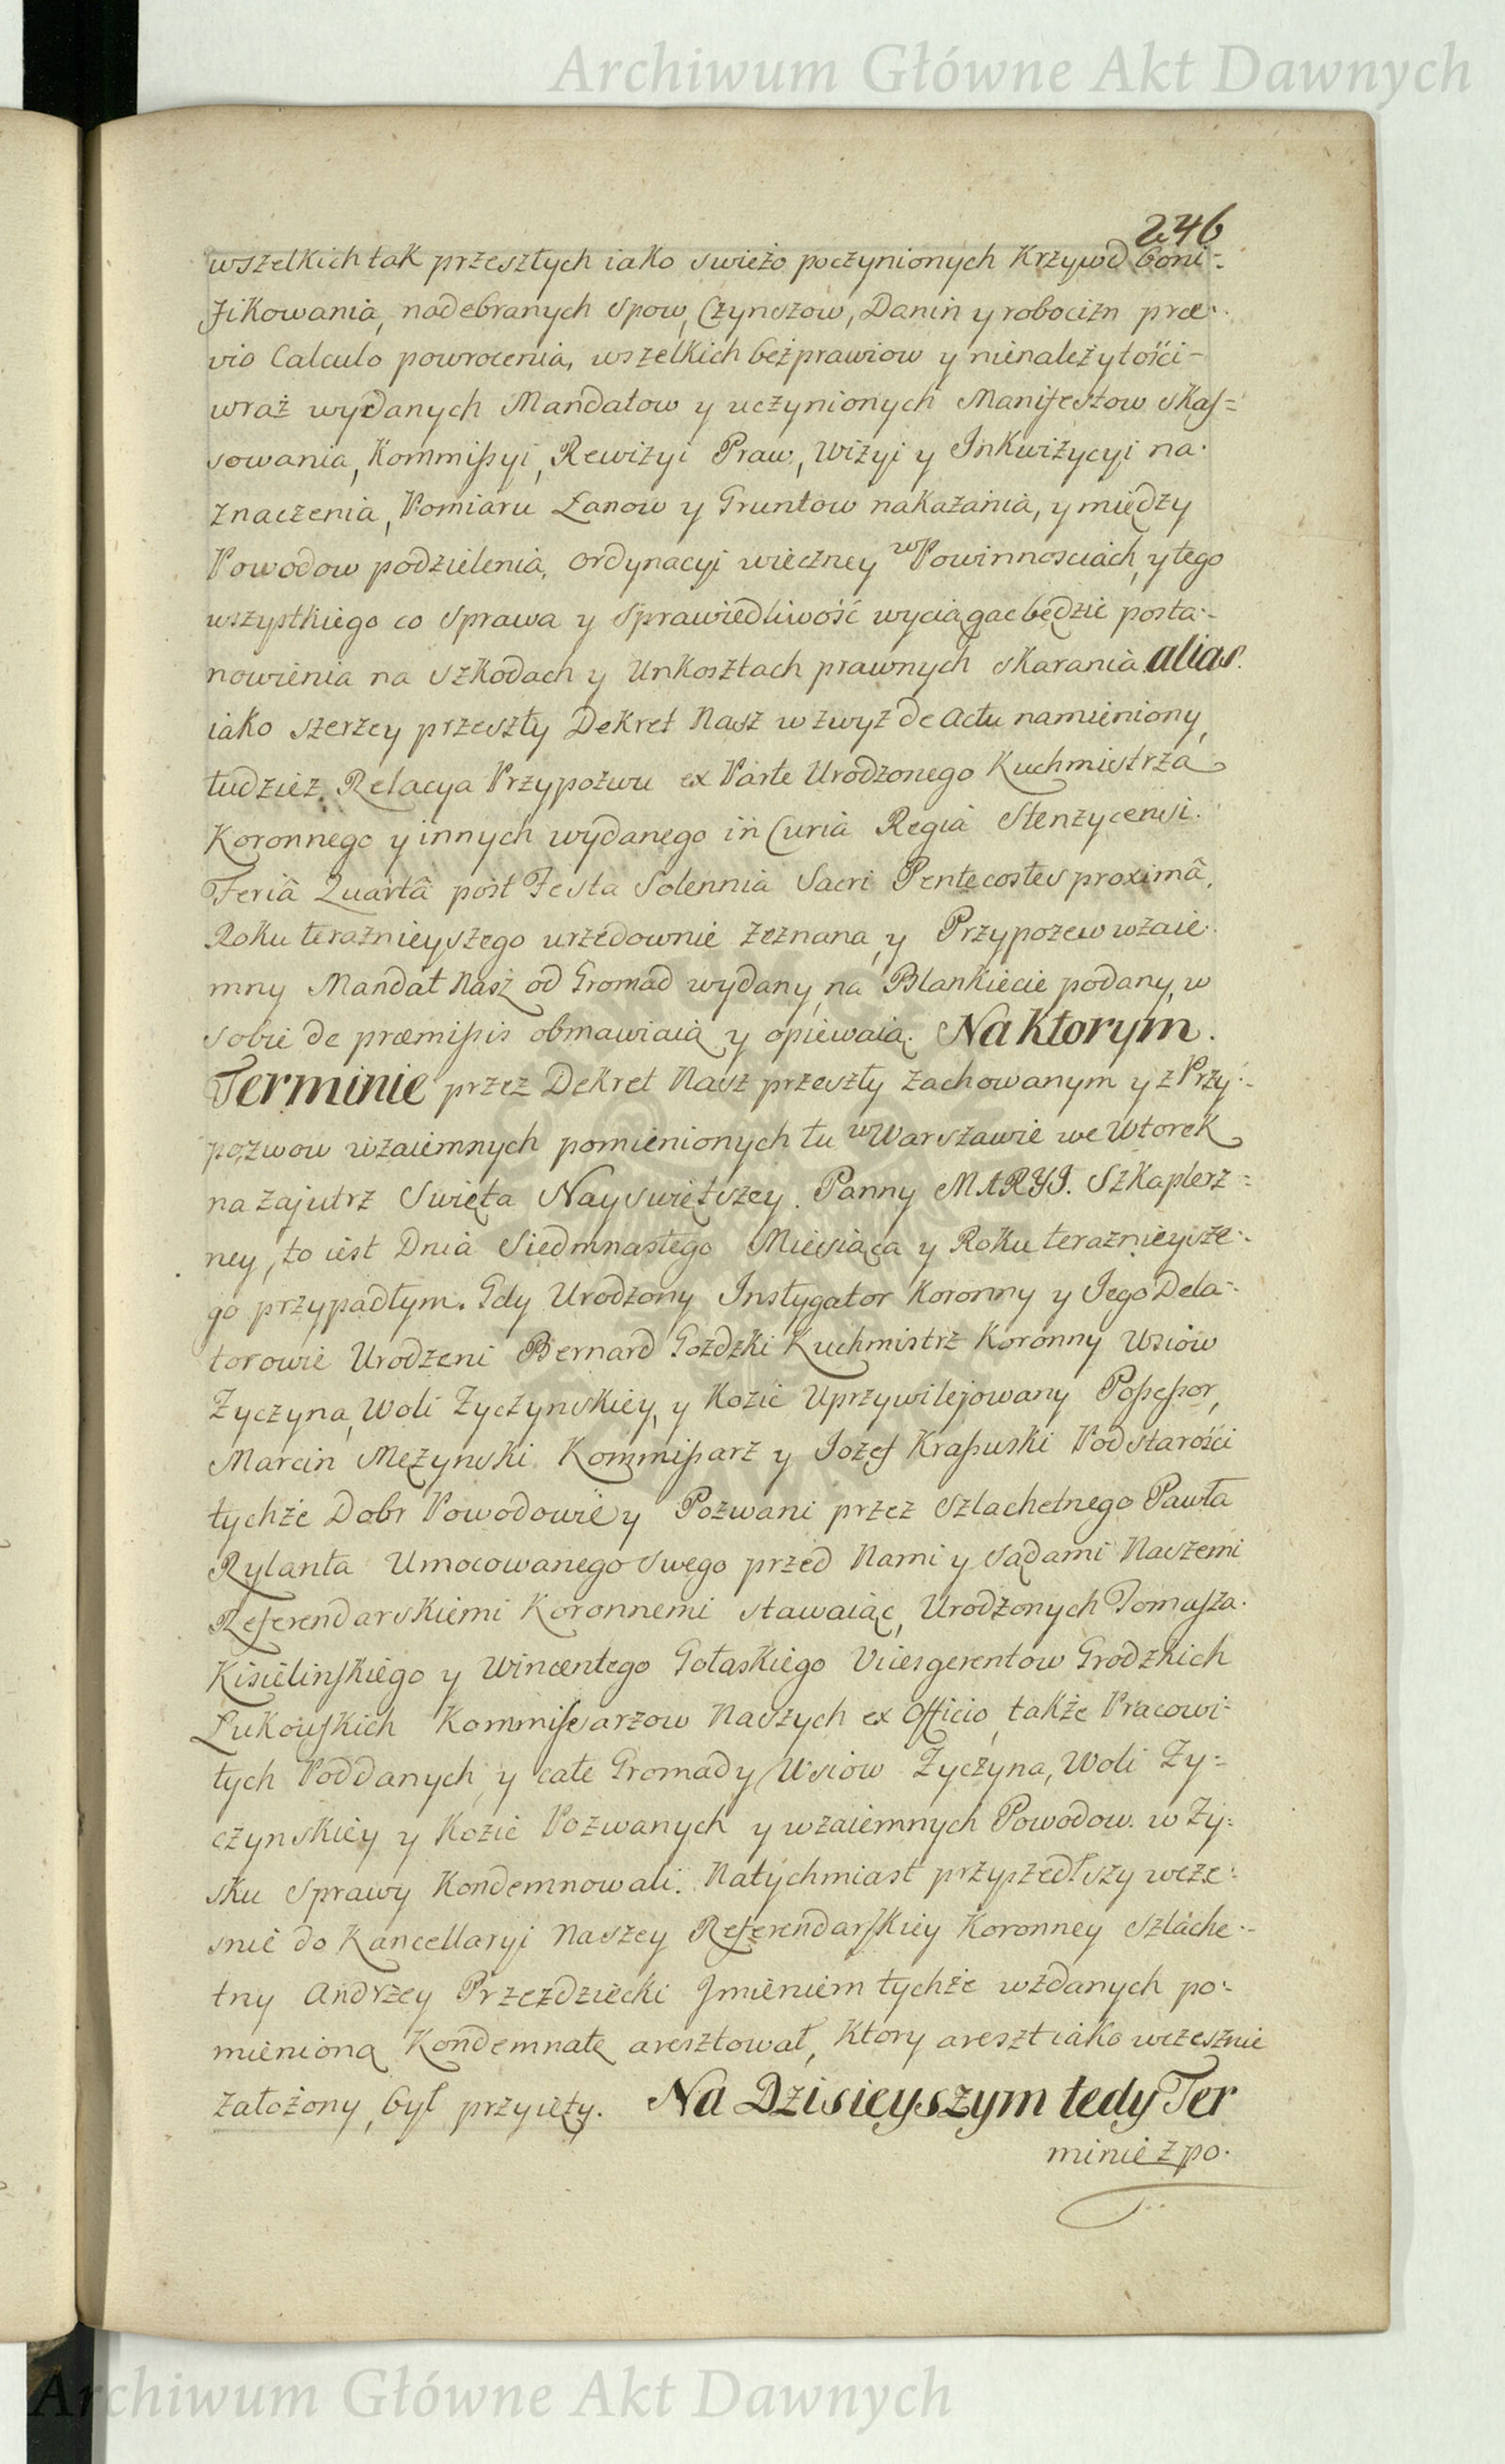 Archiwum Główne Akt Dawnych
246
wszelkich tak przeszłych iako swieżo poczynionych Krzywd boni-
fikowania, nadebranych Spow, Czynszow, Danin y robocizn præ-
vio Calculo powrocenia, wszelkich beżprawiow y nienależytości
wraż wydanych Mandatow y uczynionych Manifestow skas=
sowania, Kommissyi, Rewizyi Praw, Wizyi y Inkwizycyi na-
znaczenia, Pomiaru Łanow y Gruntow nakazania, y między
Powodow podzielenia, ordynacyi wieczney w Powinnosciach, y tego
wszystkiego co Sprawa y Sprawiedliwość wyciągac będzie posta-
nowienia na Szkodach y Unkosztach prawnych skarania alias.
iako szerzey przeszły Dekret Nasz wzwyż de Actu namieniony,
tudziez Relacya Przypozwu ex Parte Urodzonego Kuchmistrza
Koronnego y innych wydanego in Curia Regia Stenzycensi.
Feriâ Quartâ post Festa Solennia Sacri Pentecostes proximâ,
Roku terażnieyszego urzędownie zeznana, y Przypozew wzaie-
mny Mandat Nasz od Gromad wydany, na Blankiecie podany, w
sobie de præmissis obmawiaią y opiewaią. Na Ktorym.
Terminie przez Dekret Nasz przeszły zachowanym y z Przy-
pozwow wzaiemnych pomienionych tu w Warszawie we Wtorek
na zajutrz Swięta Nayswiętszey Panny MARYI. Szkaplerz=
ney, to iest Dnia Siedmnastego Miesiąca y Roku terażnieysze-
go przypadłym. Gdy Urodzony Instygator Koronny y Jego Dela-
torowie Urodzeni Bernard Gozdzki Kuchmistrz Koronny Wsiow
Zyczyna, Woli Zyczynskiey, y Kozic Uprzywilejowany Possessor,
Marcin Mężynski Kommissarz y Jozef Krassuski Podstarości
tychże Dobr Powodowie y Pozwani przez Szlachetnego Pawła
Rylanta Umocowanego swego przed Nami y Sądami Naszemi
Referendarskiemi Koronnemi stawaiąc, Urodzonych Tomasza
Kisielinskiego y Wincentego Gołaskiego Vicesgerentow Grodzkich
Łukowskich Kommissarzow Naszych ex Officio, także Pracowi-
tych Poddanych y całe Gromady Wsiow Zyczyna, Woli Zy=
czynskiey y Kozic Pozwanych y wzaiemnych Powodow. w Zy-
sku Sprawy Kondemnowali. Natychmiast przyszedłszy wcze-
snie do Kancellaryi Naszey Referendarskiey Koronney Szlache-
tny Andrzey Przezdziecki Imieniem tychże wzdanych po-
mienioną Kondemnatę aresztował, Ktory areszt iako wczesznie
założony, był przyięty. Na Dzisieyszym tedy Ter
minie z po.
Archiwum Główne Akt Dawnych